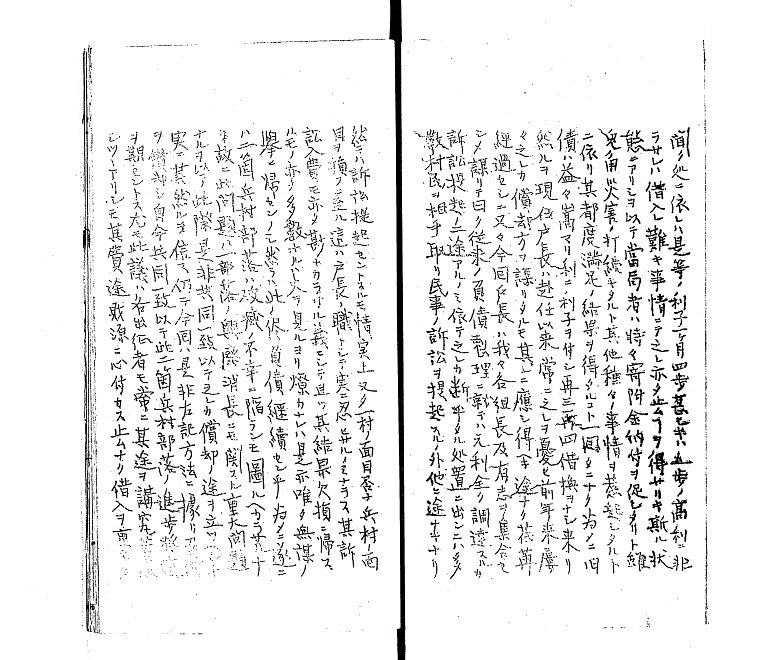 聞ク処ニ依レハ是等ノ利子ハ月四歩甚シキハ五歩ノ高利ニ非
ラサレハ借入レ難キ事情ニテ之レ亦タ止ムヲ得サリキ斯ル状
態ニアリシヲ以テ当局者ハ時々寄附金納付ヲ促シタルト雖
兎角火災ノ打続キタルト其他種々事情ヲ惹起シタルト
ニ依リ其都度満足ノ結果ヲ得タルコト一回タニナク為メニ旧
債ハ益々嵩マリ利ニ利子ヲ付シ再三再四借換ヲナシ来リ
然ルヲ現任戸長ハ赴任以来常ニ之レヲ憂ヒ前年来屡
々之レカ償却方ヲ謀リタルモ其ニ応シ得ヘキ途ナク荏苒
経過セシニ又々今回戸長ハ我々各組長及有志ヲ集合セ
シメ謀リテ曰ク従来ノ負債整理ニ就テハ元利金ヲ調達スルカ
訴訟提起ノ二途アルノミ依テ之レカ断乎タル処置ニ出ンニハ多
数村民ヲ相手取リ民事ノ訴訟ヲ提起スル外他ニ途ナキナリ
然レハ訴訟提起セントスルモ情実上又タ一村ノ面目否ナ兵村ノ面
目ヲ損フニ至ル這ハ戸長ノ職トシテ実ニ忍ヒサルノミナラス其訴
訟入費モ亦タ尠ナカラサル義ニシテ且ツ其結果欠損ニ帰ス
ルモノ亦タ多数ナルヘク火ヲ見ルヨリ燎カナレハ是亦唯タ無謀ノ
挙ニ帰センノミ然ラハ此ノ侭負債継続センヰ為メニ遂ニ
ハ二箇兵村部落ハ破滅ノ不幸ニ陥ランモ図ルヘカラサルナ
リ故ニ此問題ハ一部落ノ興廃消長ニモ関スル重大問題
ナルヲ以テ此際是非共同一致以テ之レカ償却ノ途ヲ立ツ
実ニ其然ルヲ信ス仍テ今回ハ是非左記方法ニ拠リ
ヲ償却シ自今共同一致以テ此二箇兵村部落ノ進歩発達
ヲ期セントス尤モ此議ハ各出征者モ常ニ其途ヲ講究
シツヽアリシモ其費途財源ニ心付カス止ムナク借入ヲ